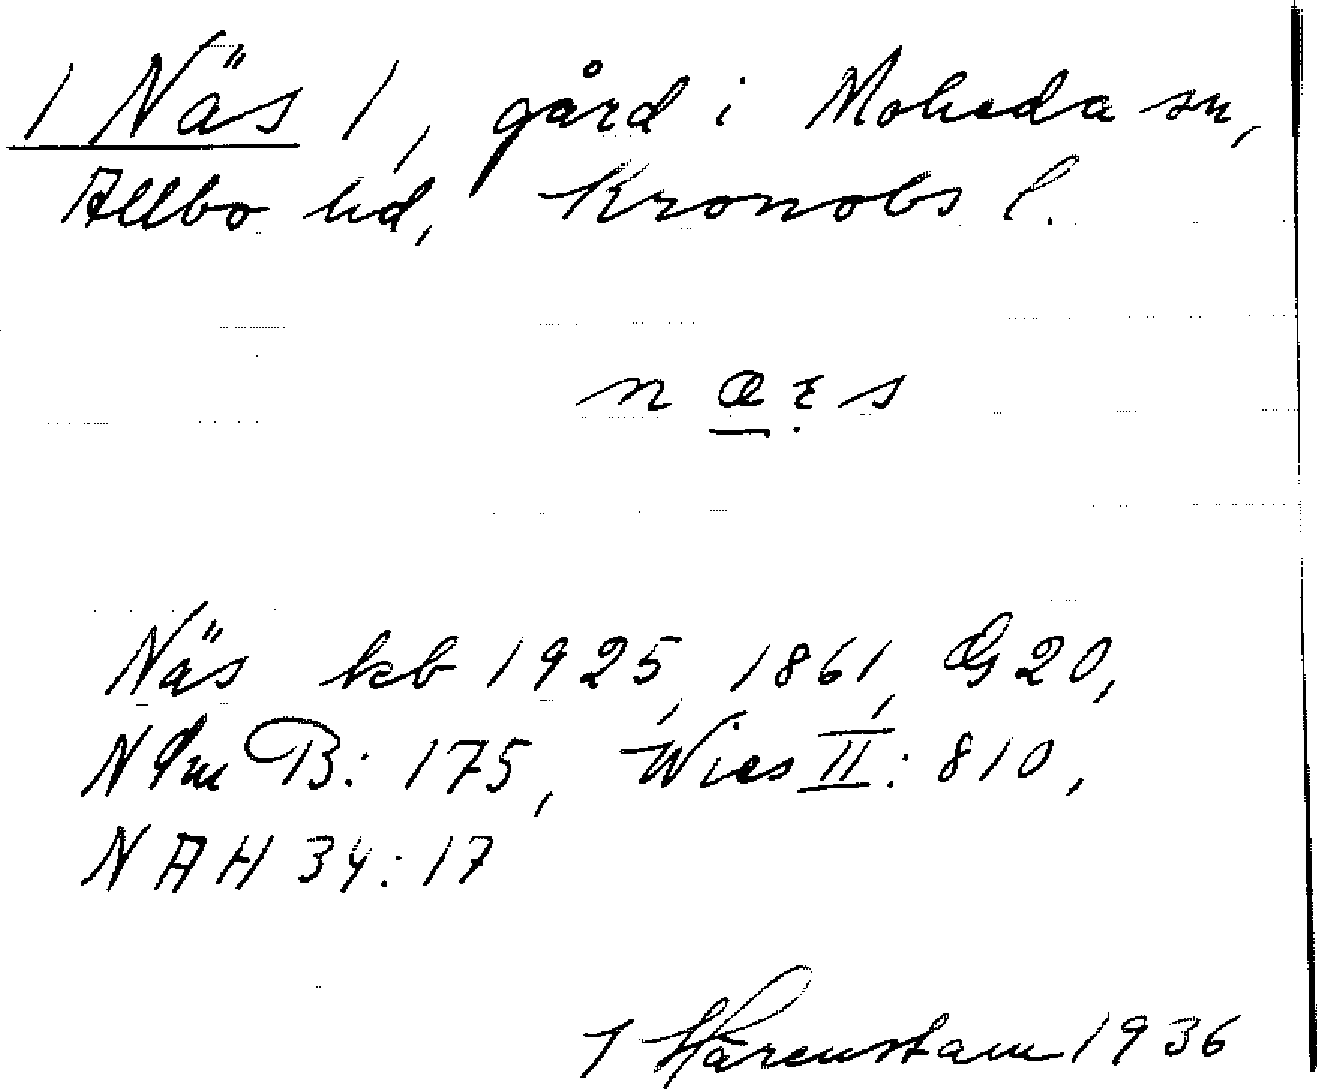 1 Näs 1, gård i Moheda sn,
Allbo hd, Kronobs l.
n æ ː s
Näs kb 1925, 1861, G 20,
B: 175, Wies II: 810,
NAH 34: 17
J Hårenstam 1936